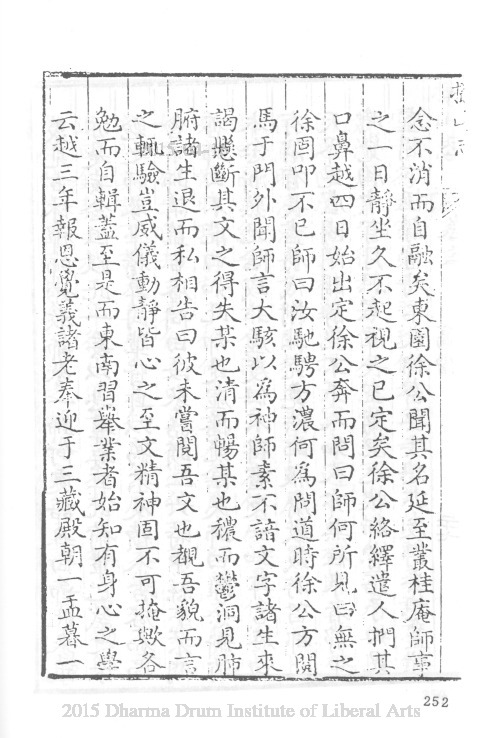 念不消而自融矣東園徐公聞其名延至叢桂庵師事
之一日靜坐久不起視之已定矣徐公絡繹遣人捫其
口鼻越四日始出定徐公奔而問曰師何所見曰無之
徐固叩不已師曰汝馳騁方濃何為問道時徐公方閱
馬于門外聞師言大駭以為神師素不諳文字諸生來
謁懸斷其文之得失某也清而暢某也穠而鬱洞見肺
腑諸生退而私相告曰彼未嘗閱吾文也覩吾貌而言
之輒驗豈威儀動靜皆心之至文精神固不可掩歟各
勉而自輯蓋至是而東南習舉業者始知有身心之學
云越三年報恩覺義諸老奉迎于三藏殿朝一盂暮一
252
2015 Dharma Drum Institute of Liberal Arts